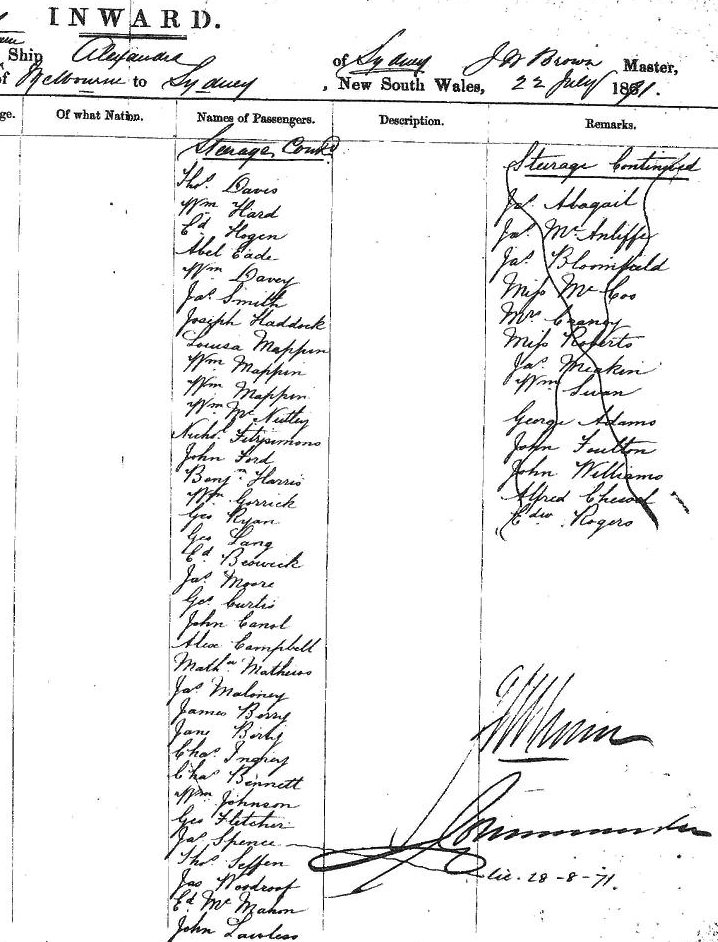 INWARD.
Ship Alexandra of Sydney J W Brown Master,
of Melbourne to Sydney, New South Wales, 22 July 1871.
Of what Nation. Names of Passengers. Description. Remarks.
Steerage Contd
Thos. Davis
Wm Hard
Ed. Hogen
Abel Eade
Wm Davey
Jas. Smith
Joseph Haddock
Louisa Mappin
Wm Mappin
Wm Mappin
Wm McNutley
Nichs. Fitzsimons
John Ford
Benjn Harris
Wm Gorrick
Geo Ryan
Geo Lang
Ed. Beswick
Jas. Moore
Geo. Curtis
John Canol
Alex Campbell
Mathw Mathews
Jas. Maloney
James Berry
Jane Berry
Chas. Ingrey
Chas Bennett
Wm Johnson
Geo Fletcher
Jas. Spence
Thos. Seffen
Jas Woodroof
Ed. McMahon
John Lawless
Steerage Continued
Js. Abagail
Jas. McAnliffe
Jas. Bloomfield
Miss McCoo
Mrs Craney
Miss Roberts
Jas. Meakin
Wm Swan
George Adams
John Foulton
John Williams
Alfred
Edw. Rogers
Commander
28-8-71.